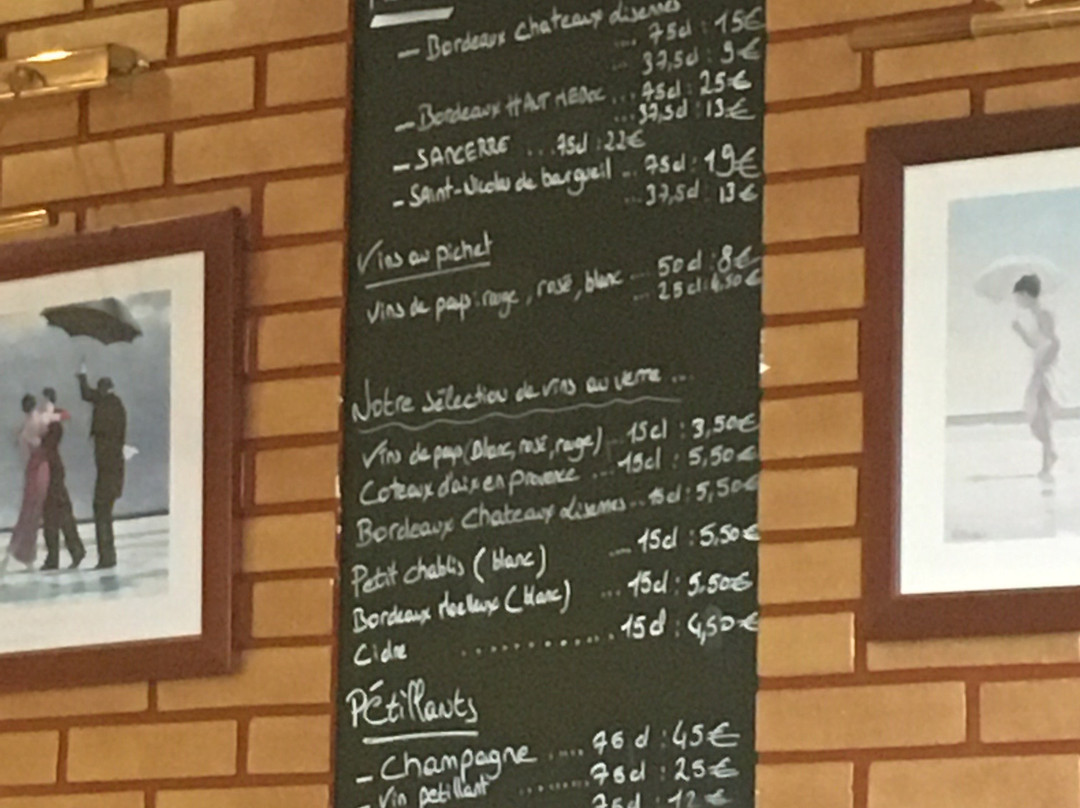 - Bordeaux Chateaux Lisennes
... 75cl : 15€
... 37,5cl : 9€
- Bordeaux HAUT MEDOC ... 75cl : 25€
... 37,5cl : 13€
- SANCERRE ... 75cl : 22€
- SAint-Nicolas de bourgueil ... 75cl : 19€
... 37,5cl 13€
Vins au pichet
Vins de pays : rouge, rosé, blanc ... 50cl : 8€
... 25cl : 4,50€
Notre sélection de vins au verre ...
Vins de pays (Blanc, rosé, rouge) ... 15cl : 3,50€
Coteaux d'aix en Provence ... 15cl : 5,50€
Bordeaux Chateaux Lisennes ... 15cl : 5,50€
Petit chablis (blanc) ... 15cl : 5,50€
Bordeaux Moelleux (blanc) ... 15cl : 5,50€
Cidre ............ 15cl : 4,50€
Pétillants
- Champagne .... 75cl : 45€
- Vin petillant ...... 75cl : 25€
75cl : 12€